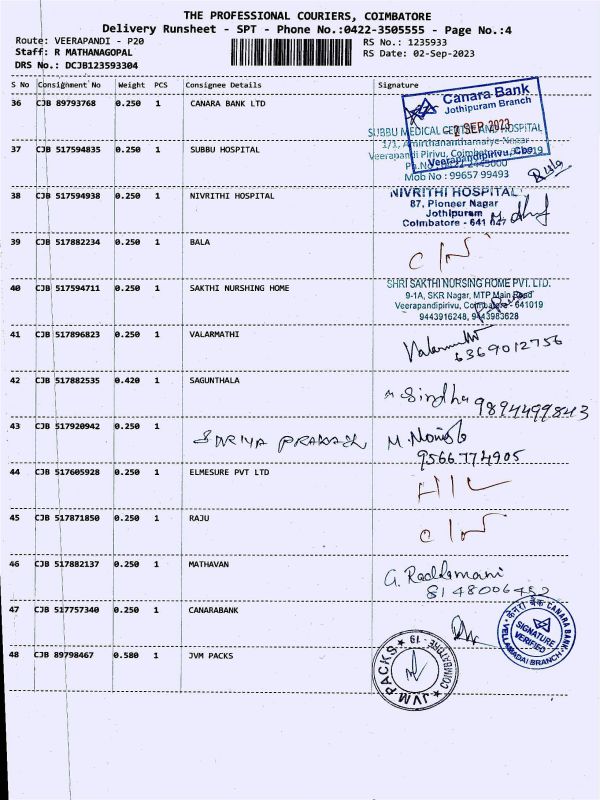 THE PROFESSIONAL COURIERS, COIMBATORE
Delivery Runsheet - SPT - Phone No.:0422-3505555 - Page No.:4
Route: VEERAPANDI - P20
RS No.: 1235933
Staff: R MATHANAGOPAL
RS Date: 02-Sep-2023
DRS No.: DCJB123593304
S No Consignment No Weight PCS Consignee Details Signature
36 CJB 89793768 0.250 1 CANARA BANK LTD
Canara Bank
Jothipuram Branch
2 SEP 2023
Veerapandipirivu, Cbe
37 CJB 517594835 0.250 1 SUBBU HOSPITAL
SUBBU MEDICAL CENTRE AND HOSPITAL
Veerapandi Pirivu, Coimbatore
Mob No : 99657 99493
38 CJB 517594938 0.250 1 NIVRITHI HOSPITAL
NIVRITHI HOSPITAL
87, Pioneer Nagar
Jothipuram
Coimbatore - 641 047
39 CJB 517882234 0.250 1 BALA
40 CJB 517594711 0.250 1 SAKTHI NURSHING HOME
SHRI SAKTHI NURSING HOME PVT. LTD.
9-1A, SKR Nagar, MTP Main Road
Veerapandipirivu, Coimbatore - 641019
9443916248, 9443983628
41 CJB 517896823 0.250 1 VALARMATHI
Valarmathi
6369012756
42 CJB 517882535 0.420 1 SAGUNTHALA
Sindhu 9894499843
43 CJB 517920942 0.250 1 SURIYA PRAKASH
9566774905
44 CJB 517605928 0.250 1 ELMESURE PVT LTD
45 CJB 517871850 0.250 1 RAJU
46 CJB 517882137 0.250 1 MATHAVAN
G. Raddamani
8148006452
47 CJB 517757340 0.250 1 CANARABANK
केनरा बैंक CANARA BANK
SIGNATURE
VERIFIED
VELLAMADAI BRANCH
48 CJB 89798467 0.580 1 JVM PACKS
JVM PACKS
COIMBATORE - 19